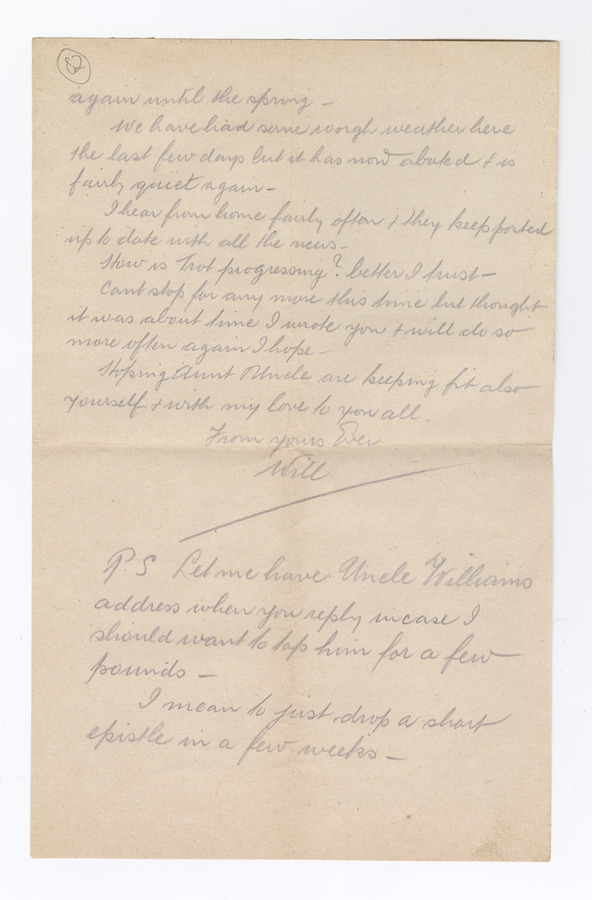 82
again until the spring -
We have had some rough weather here
the last few days but it has now abated & is
fairly quiet again -
I hear from home fairly often & they keep posted
up to date with all the news -
How is Trot progressing? better I trust -
Cant stop for any more this time but thought
it was about time I wrote you & will do so
more often again I hope -
Hoping Aunt & Uncle are keeping fit also
yourself & with my love to you all.
From yours Ever
Will
P.S Let me have Uncle Williams
address when you reply incase I
should want to tap him for a few
pounds -
I mean to just drop a short
epistle in a few weeks -